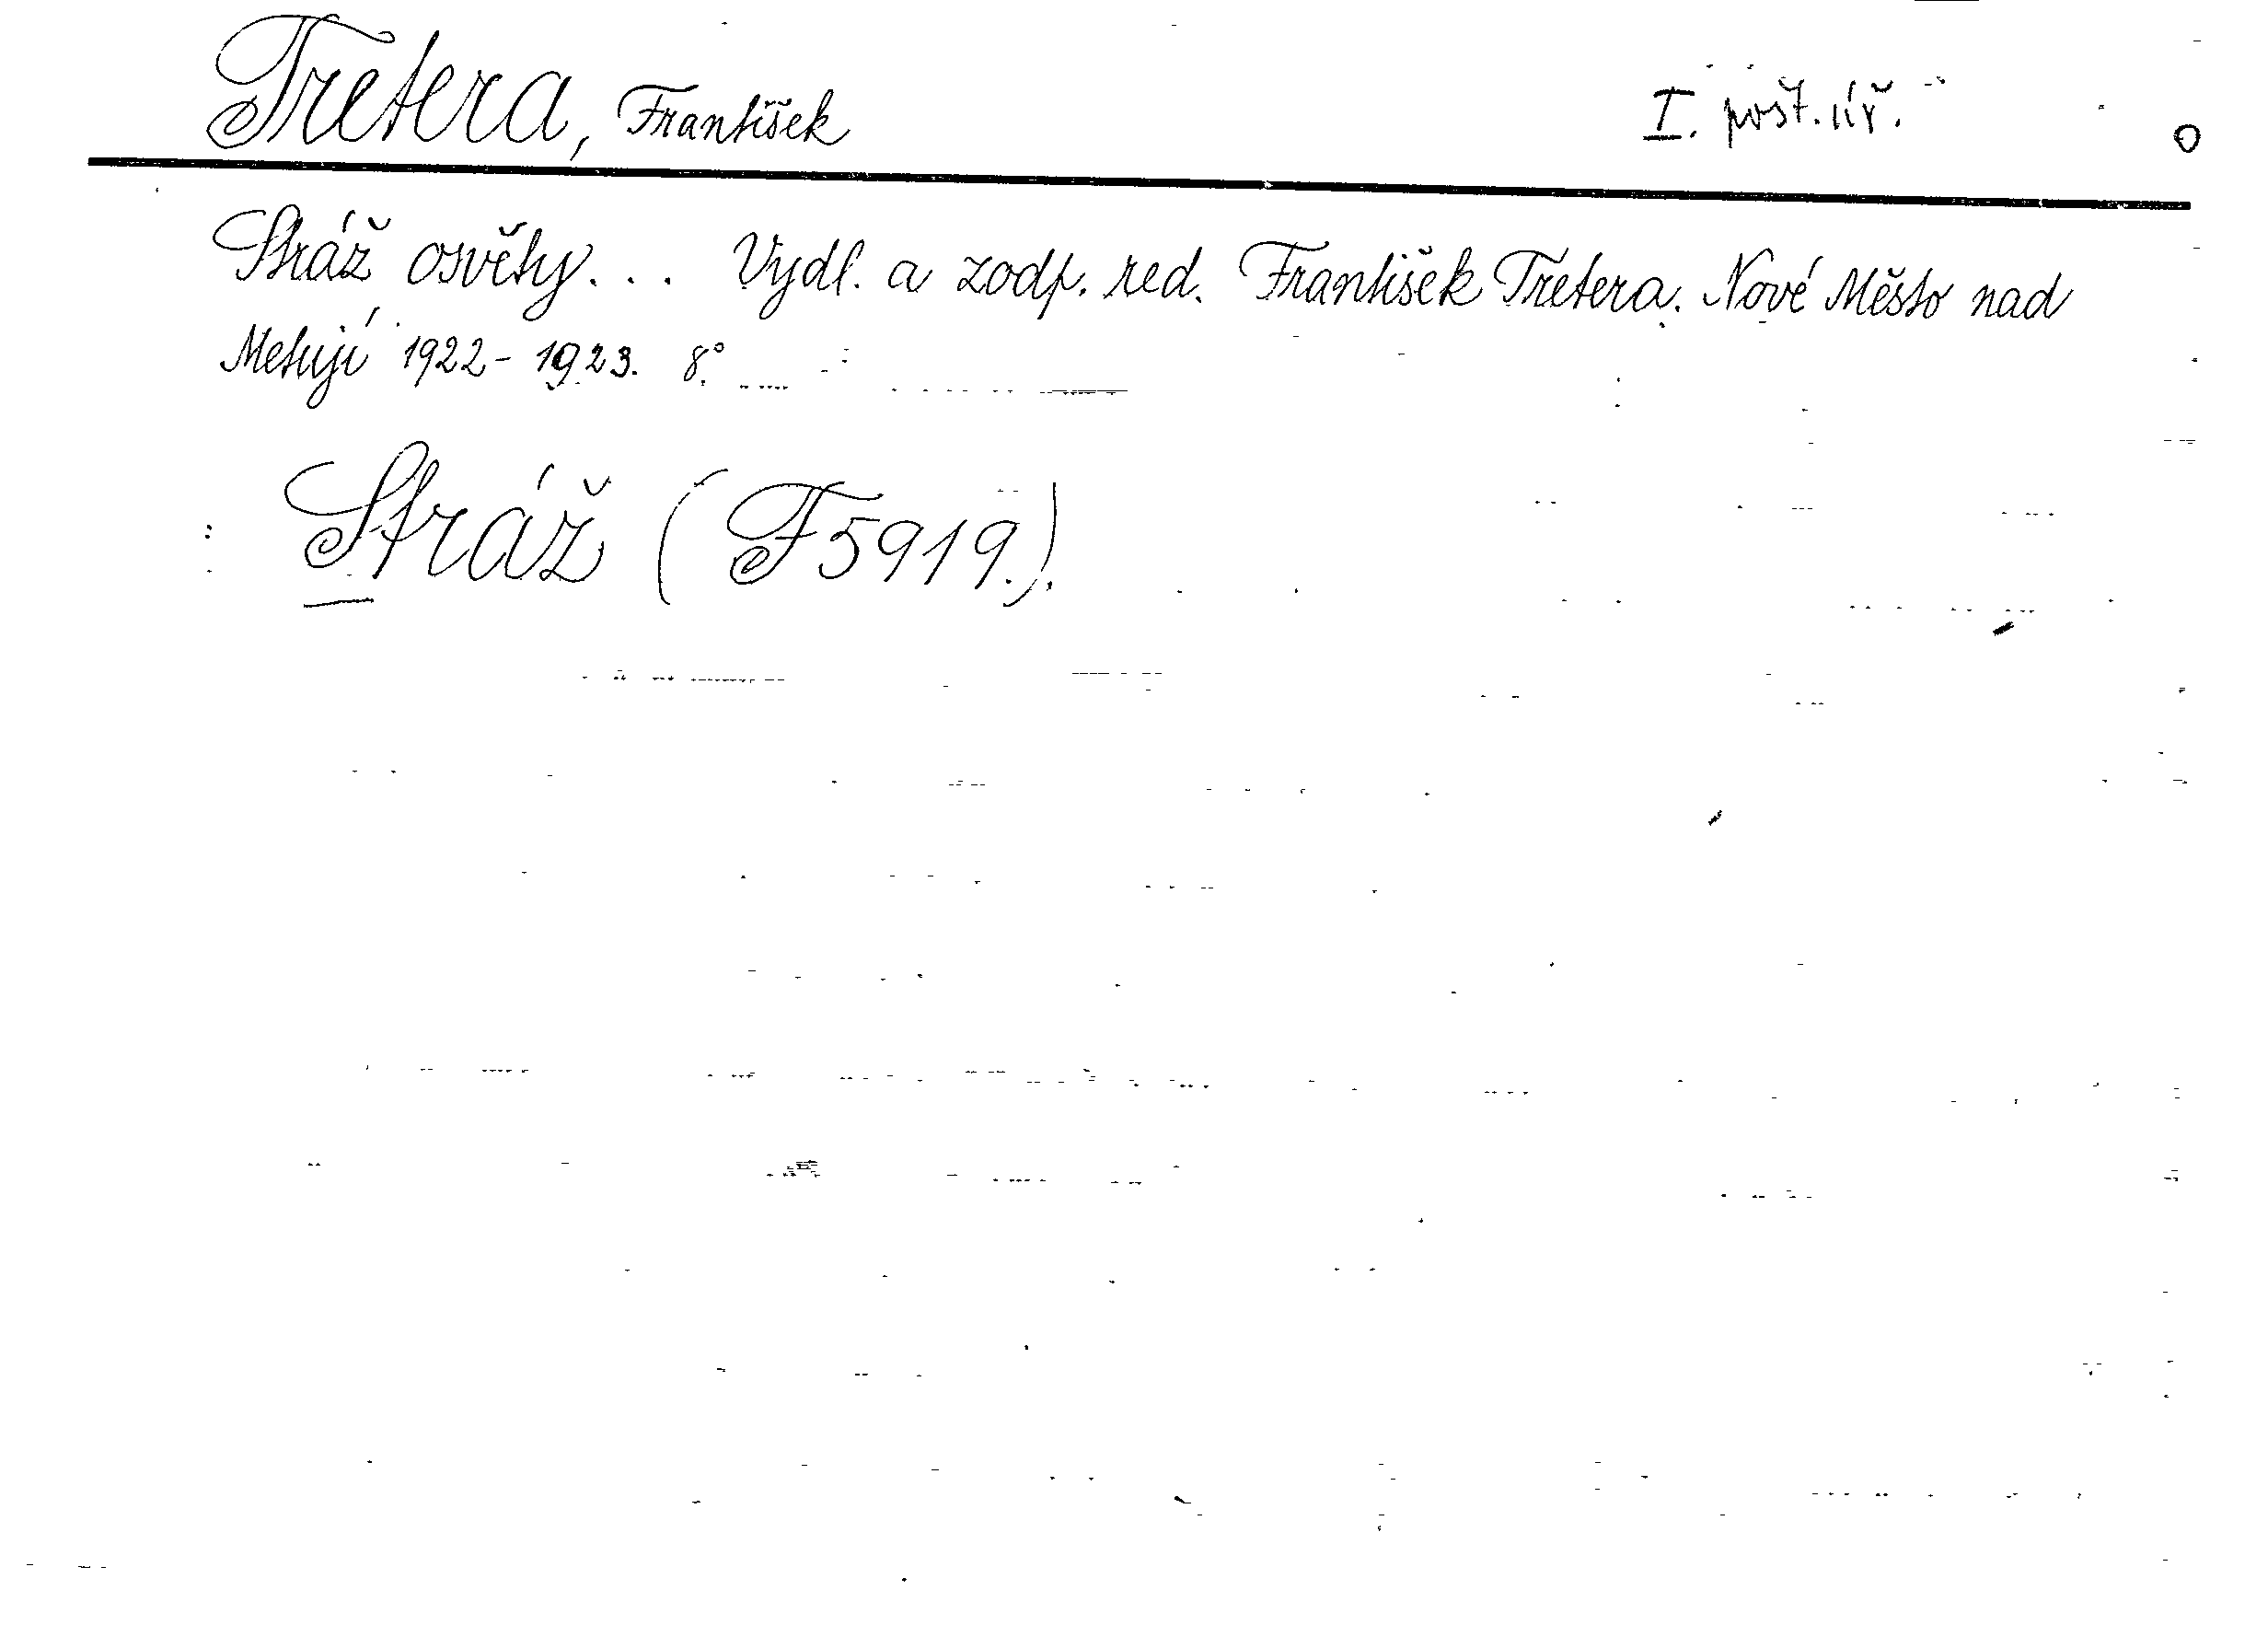 Tretera, František I. pošt. úř. O
Stráž osvěty... Vydl. a zodp. red. František Tretera. Nové Město nad
Metují 1922-1923. 8°.
Stráž (F5919.).